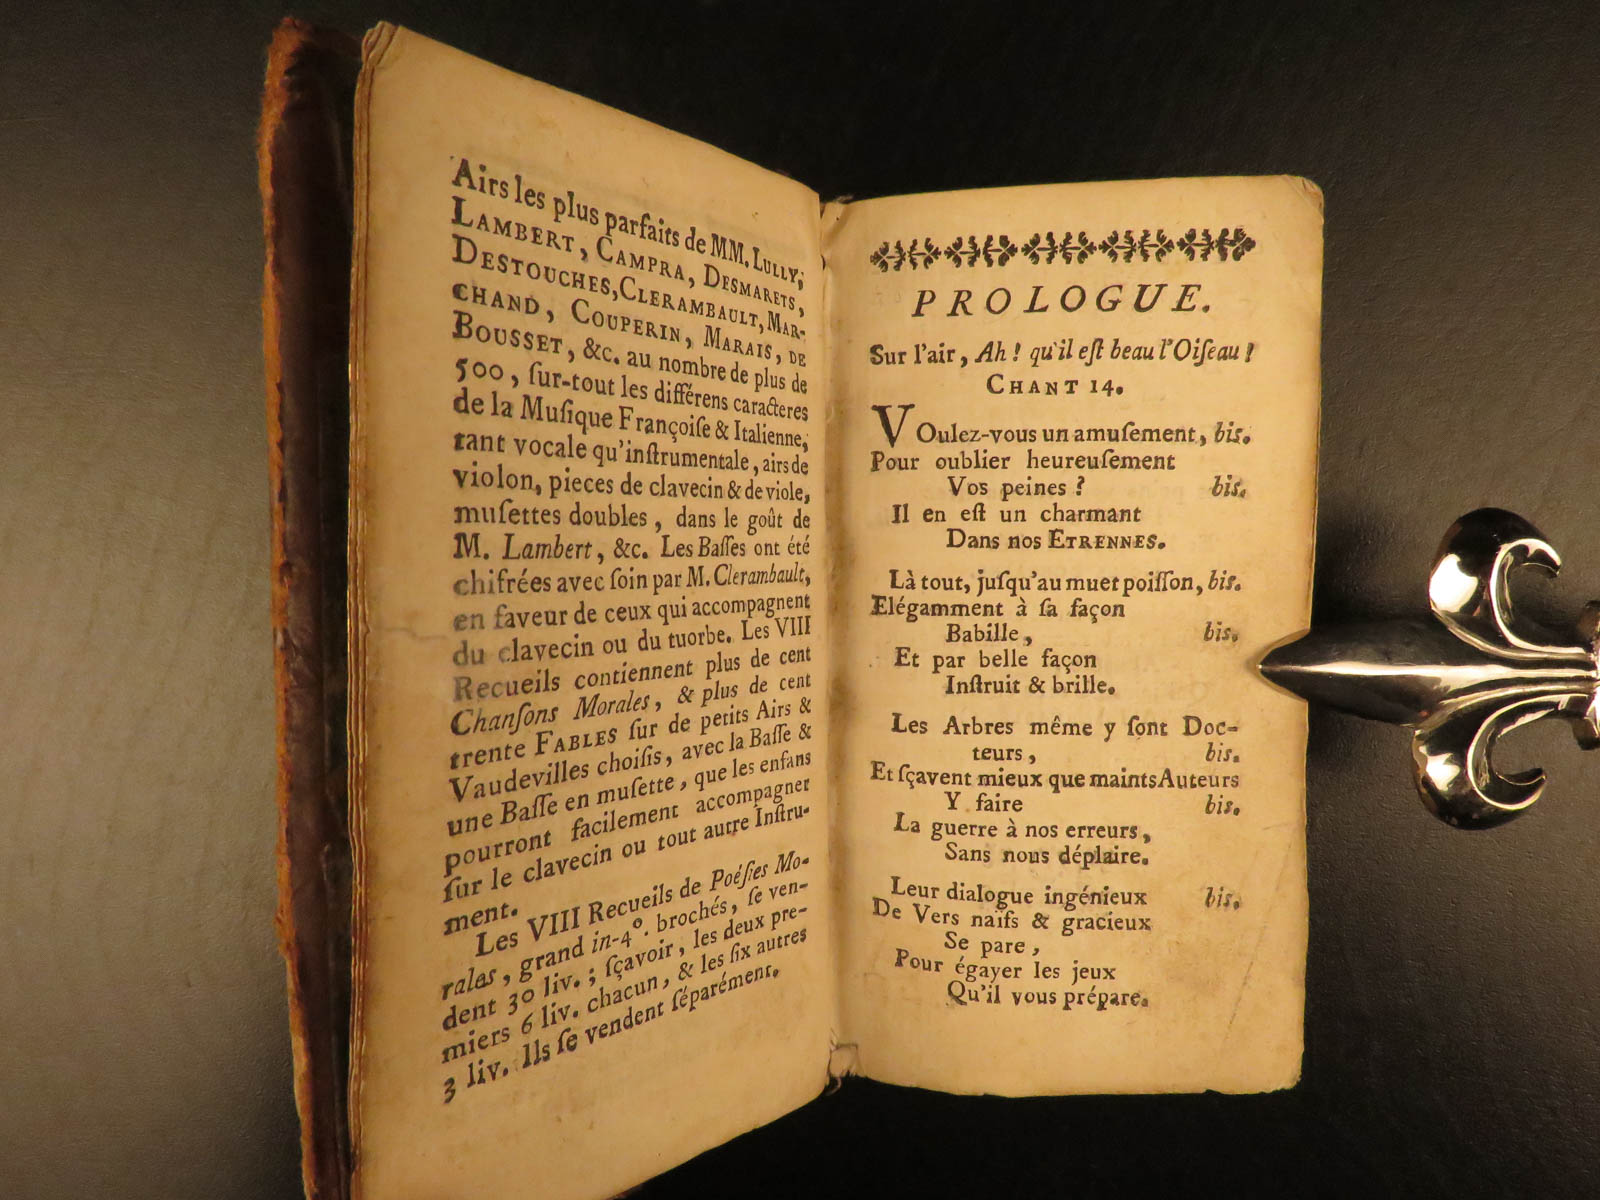 Airs les plus parfaits de MM. LULLY,
LAMBERT, CAMPRA, DESMARETS,
DESTOUCHES, CLERAMBAULT, MAR-
CHAND, COUPERIN, MARAIS, DE
BOUSSET, &c. au nombre de plus de
500, ſur-tout les différens caracteres
de la Muſique Françoiſe & Italienne,
tant vocale qu'inſtrumentale, airs de
violon, pieces de clavecin & de viole,
muſettes doubles, dans le goût de
M. Lambert, &c. Les Baſſes ont été
chifrées avec ſoin par M. Clerambault,
en faveur de ceux qui accompagnent
du clavecin ou du tuorbe. Les VIII
Recueils contiennent plus de cent
Chanſons Morales, & plus de cent
trente FABLES ſur de petits Airs &
Vaudevilles choiſis, avec la Baſſe &
une Baſſe en muſette, que les enfans
pourront facilement accompagner
ſur le clavecin ou tout autre Inſtru-
ment.
Les VIII Recueils de Poéſies Mo-
rales, grand in-4°. brochés, ſe ven-
dent 30 liv.; ſçavoir, les deux pre-
miers 6 liv. chacun, & les ſix autres
3 liv. Ils ſe vendent ſéparément.
PROLOGUE.
Sur l'air, Ah! qu'il eſt beau l'Oiſeau!
CHANT 14.
VOulez-vous un amuſement, bis.
Pour oublier heureuſement
Vos peines? bis.
Il en eſt un charmant
Dans nos ETRENNES.
Là tout, juſqu'au muet poiſſon, bis.
Elégamment à ſa façon
Babille, bis.
Et par belle façon
Inſtruit & brille.
Les Arbres même y ſont Doc-
teurs, bis.
Et ſçavent mieux que maints Auteurs
Y faire bis.
La guerre à nos erreurs,
Sans nous déplaire.
Leur dialogue ingénieux bis.
De Vers naïfs & gracieux
Se pare,
Pour égayer les jeux
Qu'il vous prépare.